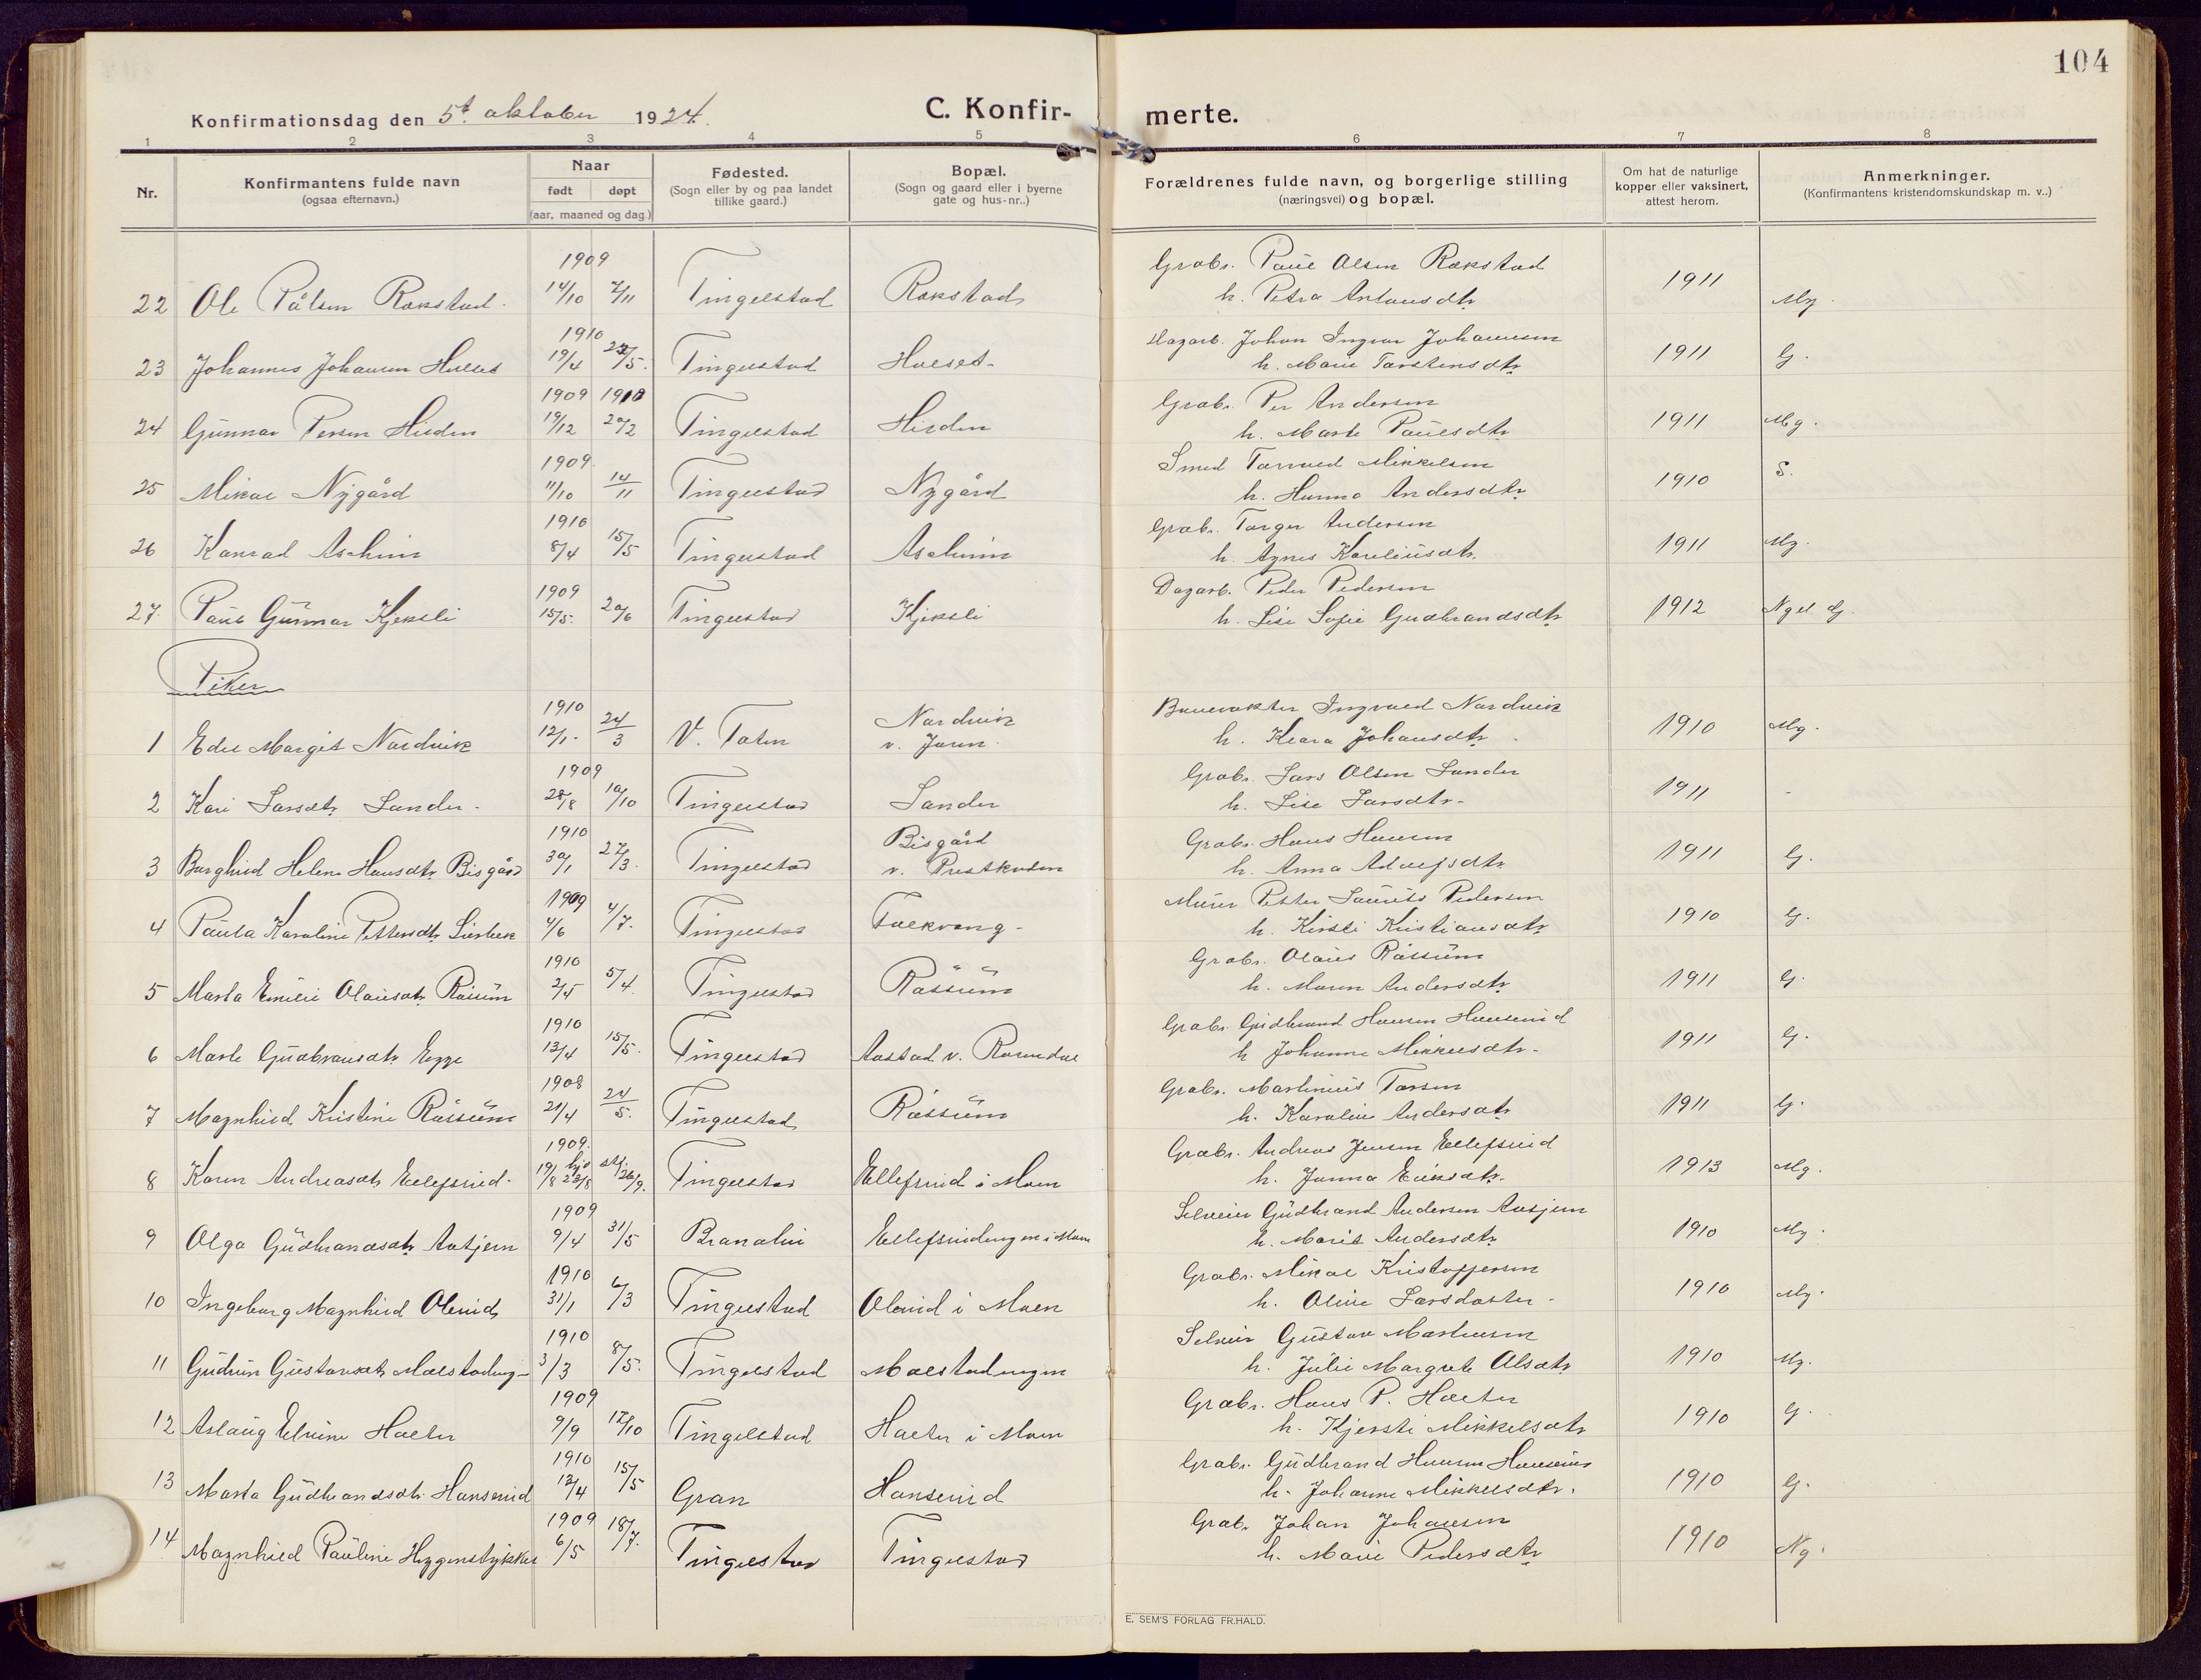 104
Konfirmationsdag den 5t oktober 1924.
C. Konfirmerte.
1 2 3 4 5 6 7 8
Nr.
Konfirmantens fulde navn
(ogsaa efternavn.)
Naar
født døpt
(aar, maaned og dag.)
Fødested.
(Sogn eller by og paa landet
tillike gaard.)
Bopæl.
(Sogn og gaard eller i byerne
gate og hus-nr..)
Forældrenes fulde navn, og borgerlige stilling
(næringsvei) og bopæl.
Om hat de naturlige
kopper eller vaksinert,
attest herom.
Anmerkninger.
(Konfirmantens kristendomskundskap m. v..)
1909 Grabr. Paul Olsen Rækstad
22 Ole Pålsen Rækstad. 14/10 7/11 Tingelstad Rækstad h. Petra Antonsdtr 1911 Mg.
1910 Dagarb. Johan Ingvar Johannesen
23 Johannes Johansen Hulset 19/4 /5. Tingelstad Hulset. h. Marie Torstensdtr 1911 G.
1909 1910 Grabr. Per Andersen
24 Gunnar Persen Hilden 19/12 20/2 Tingelstad Hilden h. Marte Paulsdtr 1911 Mg.
1909. Smed Torvald Mikkelsen
25 Mikal Nygård 11/10 14/11 Tingelstad Nygård h. Hanna Andersdtr 1910 S.
1910 Grabr. Torger Andersen
26 Konrad Aschim 8/4 15/5 Tingelstad Aschim h. Agnes Kareliusdtr. 1911 Mg.
1909 Dagarb. Peder Pedersen
27. Paul Gunnar Kjeksli 15/5. 20/6 Tingelstad Kjeksli h. Lise Sofie Gudbrandsdtr 1912 Ng el G.
Piker
1910 Nordvik Banevokter Ingvald Nordvik
1 Edel Margit Nordvik 12/1. 24/3 V. Toten v. Jaren. h. Klara Johansdtr. 1910 Mg.
1909 Grabr. Lars Olsen Sander
2 Kari Larsdtr Sander. 28/8 10/10 Tingelstad Sander h. Lise Larsdtr. 1911 -
1910 Bisgård Grabr. Hans Hansen
3 Borghild Helene Hansdtr Bisgård 30/1 27/3. Tingelstad v. Prestkvern h. Anna Adolfsdtr 1911 G.
1909 Murer Petter Laurits Pedersen
4 Paula Karoline Pettersdtr 4/6 4/7. Tingelstad Folkvang. h. Kirsti Kristiansdtr 1910 G.
1910 Grabr. Olaus Råssum
5 Marta Emilie Olausdtr Råssum 2/5 5/4. Tingelstad Råssum h. Maren Andersdtr 1911 G.
1910 Grabr. Gudbrand Hansen Hanserud
6 Marte Gudbransdtr Egge 13/4 15/5. Tingelstad Aastad v. Rosendal h Johanne Mikkelsdtr. 1911 G.
1908 Grabr. Martinius Torsen
7 Magnhild Kristine Råssum 21/4 24/5. Tingelstad Råssum h. Karoline Andersdtr 1911 G.
1909. Grabr. Andreas Jensen Ellefsrud
8 Karen Andreasdtr Ellefsrud. 19/8 hjd 22/8 st/i 26/9. Tingelstad Ellefsrud i Moen h. Janna Eriksdtr. 1913 Mg.
1909 Selveier Gudbrand Andersen Aatjern
9 Olga Gudbrandsdtr Aatjern 9/4 31/5 Brandbu Ellefsrudengen i Moen h. Marit Andersdtr 1910 Mg.
1910 Grabr. Mikal Kristoffersen
10 Ingeborg Magnhild Olerud 31/1 6/3 Tingelstad Olerud i Moen h. Oline Larsdatter. 1910 Mg.
1910 Selveier Gustav Martinsen
11 Gudrun Gustavsdtr Molstadeng. 3/3 8/5. Tingelstad Molstadengen h. Julie Margrete Olsdtr 1910 Mg.
1909 Grabr. Hans P. Holter
12 Aslaug Elvine Holter 9/9 17/10 Tingelstad Holter i Moen h. Kjersti Mikkelsdtr 1910 G.
1910 Grabr. Gudbrand Hansen Hanserud
13 Marta Gudbrandsdtr. Hanserud 13/4 15/5 Gran Hanserud h. Johanne Mikkelsdtr. 1910 G.
1909 Grabr. Johan Johansen
14 Magnhild Pauline Hyggenstykket 6/5 18/7. Tingelstad Tingelstad h. Marie Pedersdtr 1910 Ng.
E. SEM'S FORLAG FR.HALD.